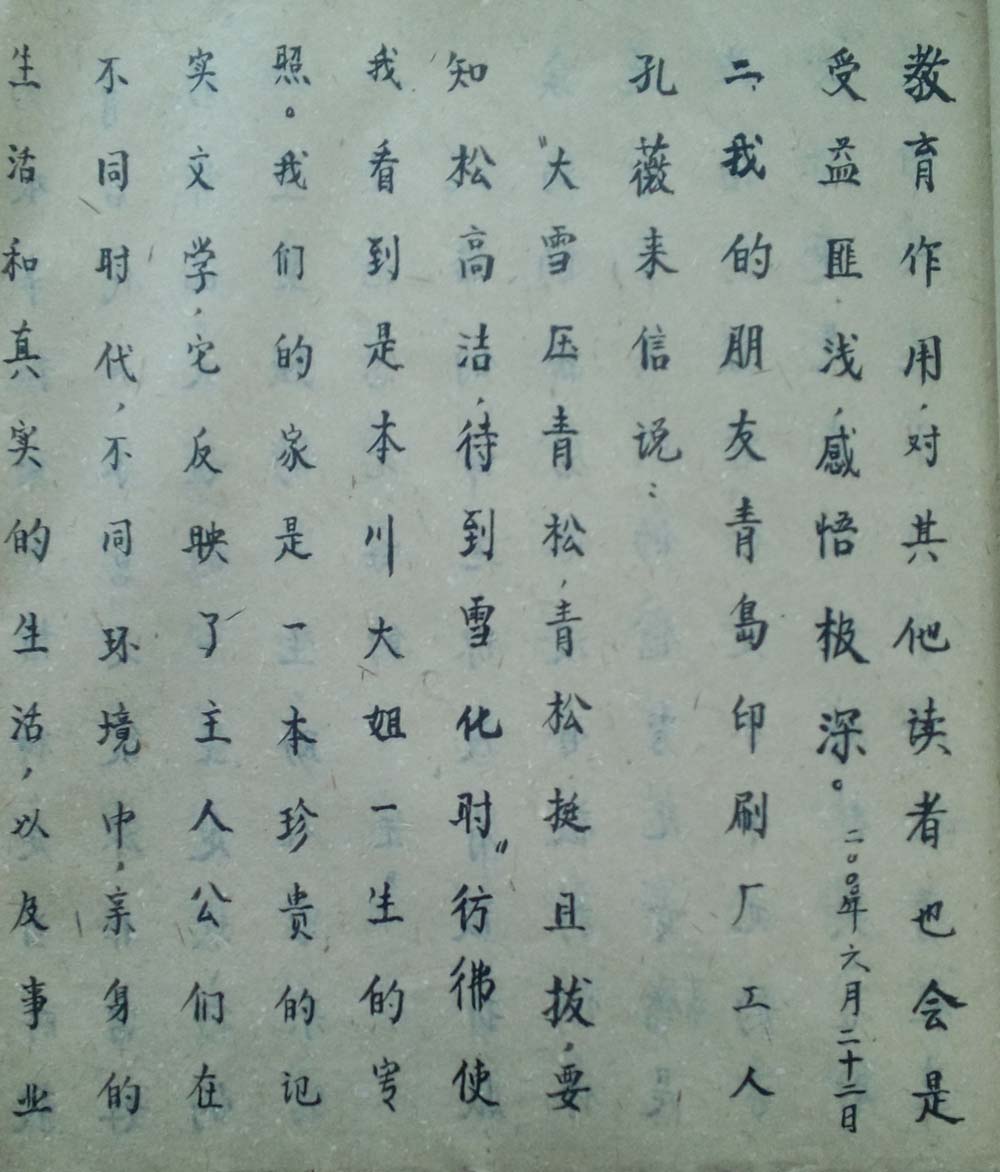 教育作用，对其他读者也会是
受益匪浅，感悟极深。二〇〇〇年六月二十二日
二、我的朋友青岛印刷厂工人
孔薇来信说：
“大雪压青松，青松挺且拔，要
知松高洁，待到雪化时”彷彿使
我看到是本川大姐一生的写
照。我们的家是一本珍贵的记
实文学，它反映了主人公们在
不同时代，不同环境中，亲身的
生活和真实的生活，以及事业